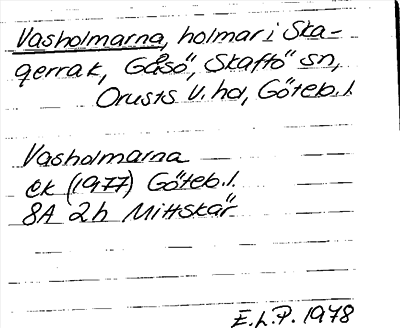 Vasholmarna, holmar i Ska-
gerrak, Gåsö, Skaftö sn,
Orusts V. hd, Göteb. l.
Vasholmarna
ek (1977) Göteb. l.
8A 2h Mittskär
E.L.P. 1978